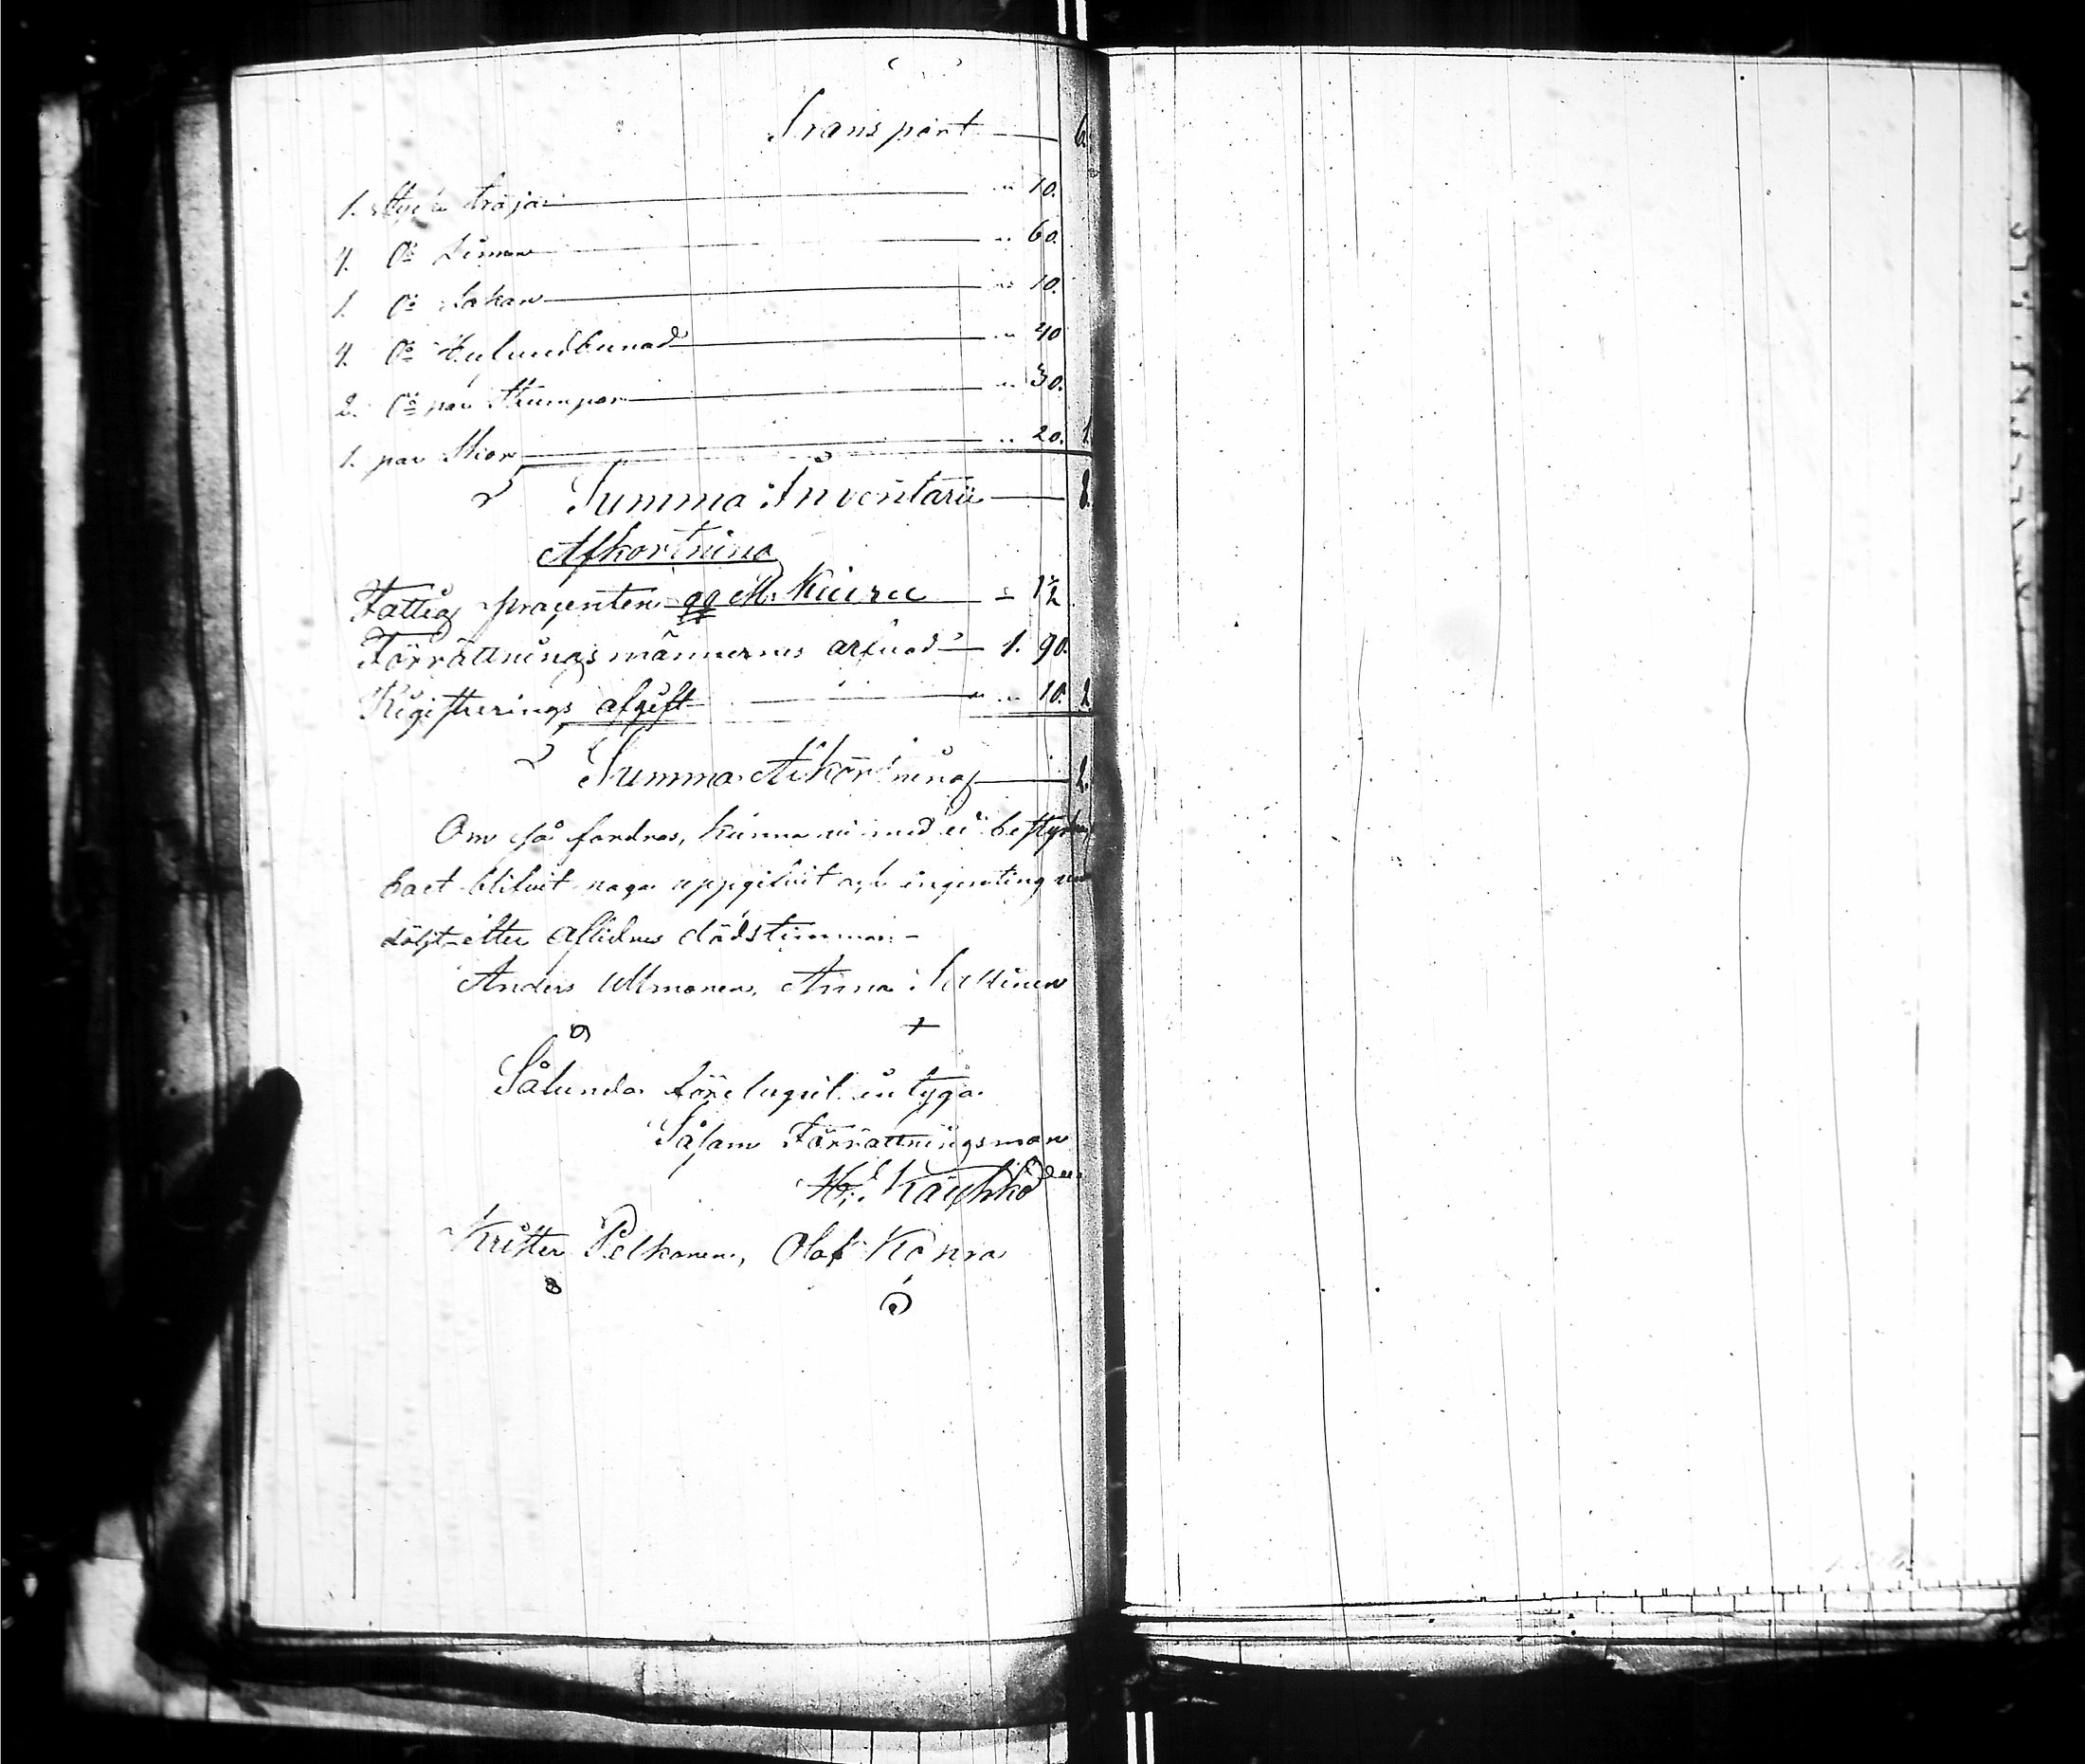 Transport — 6.
1. tröja — " 10.
4. Do Linnen — " 60.
1. Do Lakan — " 10.
4. Do Hufvudbunad — " 40
2. Do par Strumpor — " 30.
1. par Skor — " 20. 1.
Summa Inventarii — 8.
Afkortning
Fattig procenten — 1½
Förrättningsmännernes arfvod — 1. 90.
Registrerings afgift — " 10. 2.
Summa Afkortning — 2.
Om så fordras, kunna vi med ed
blifvit uppgifvit och ingenting
döljt efter Aflidnes dödstimma
Anders Ullmanen, Anna
Sålunda förelupit intyga
Såsom Förrättningsman
Krister Pelkonen, Olof Konra